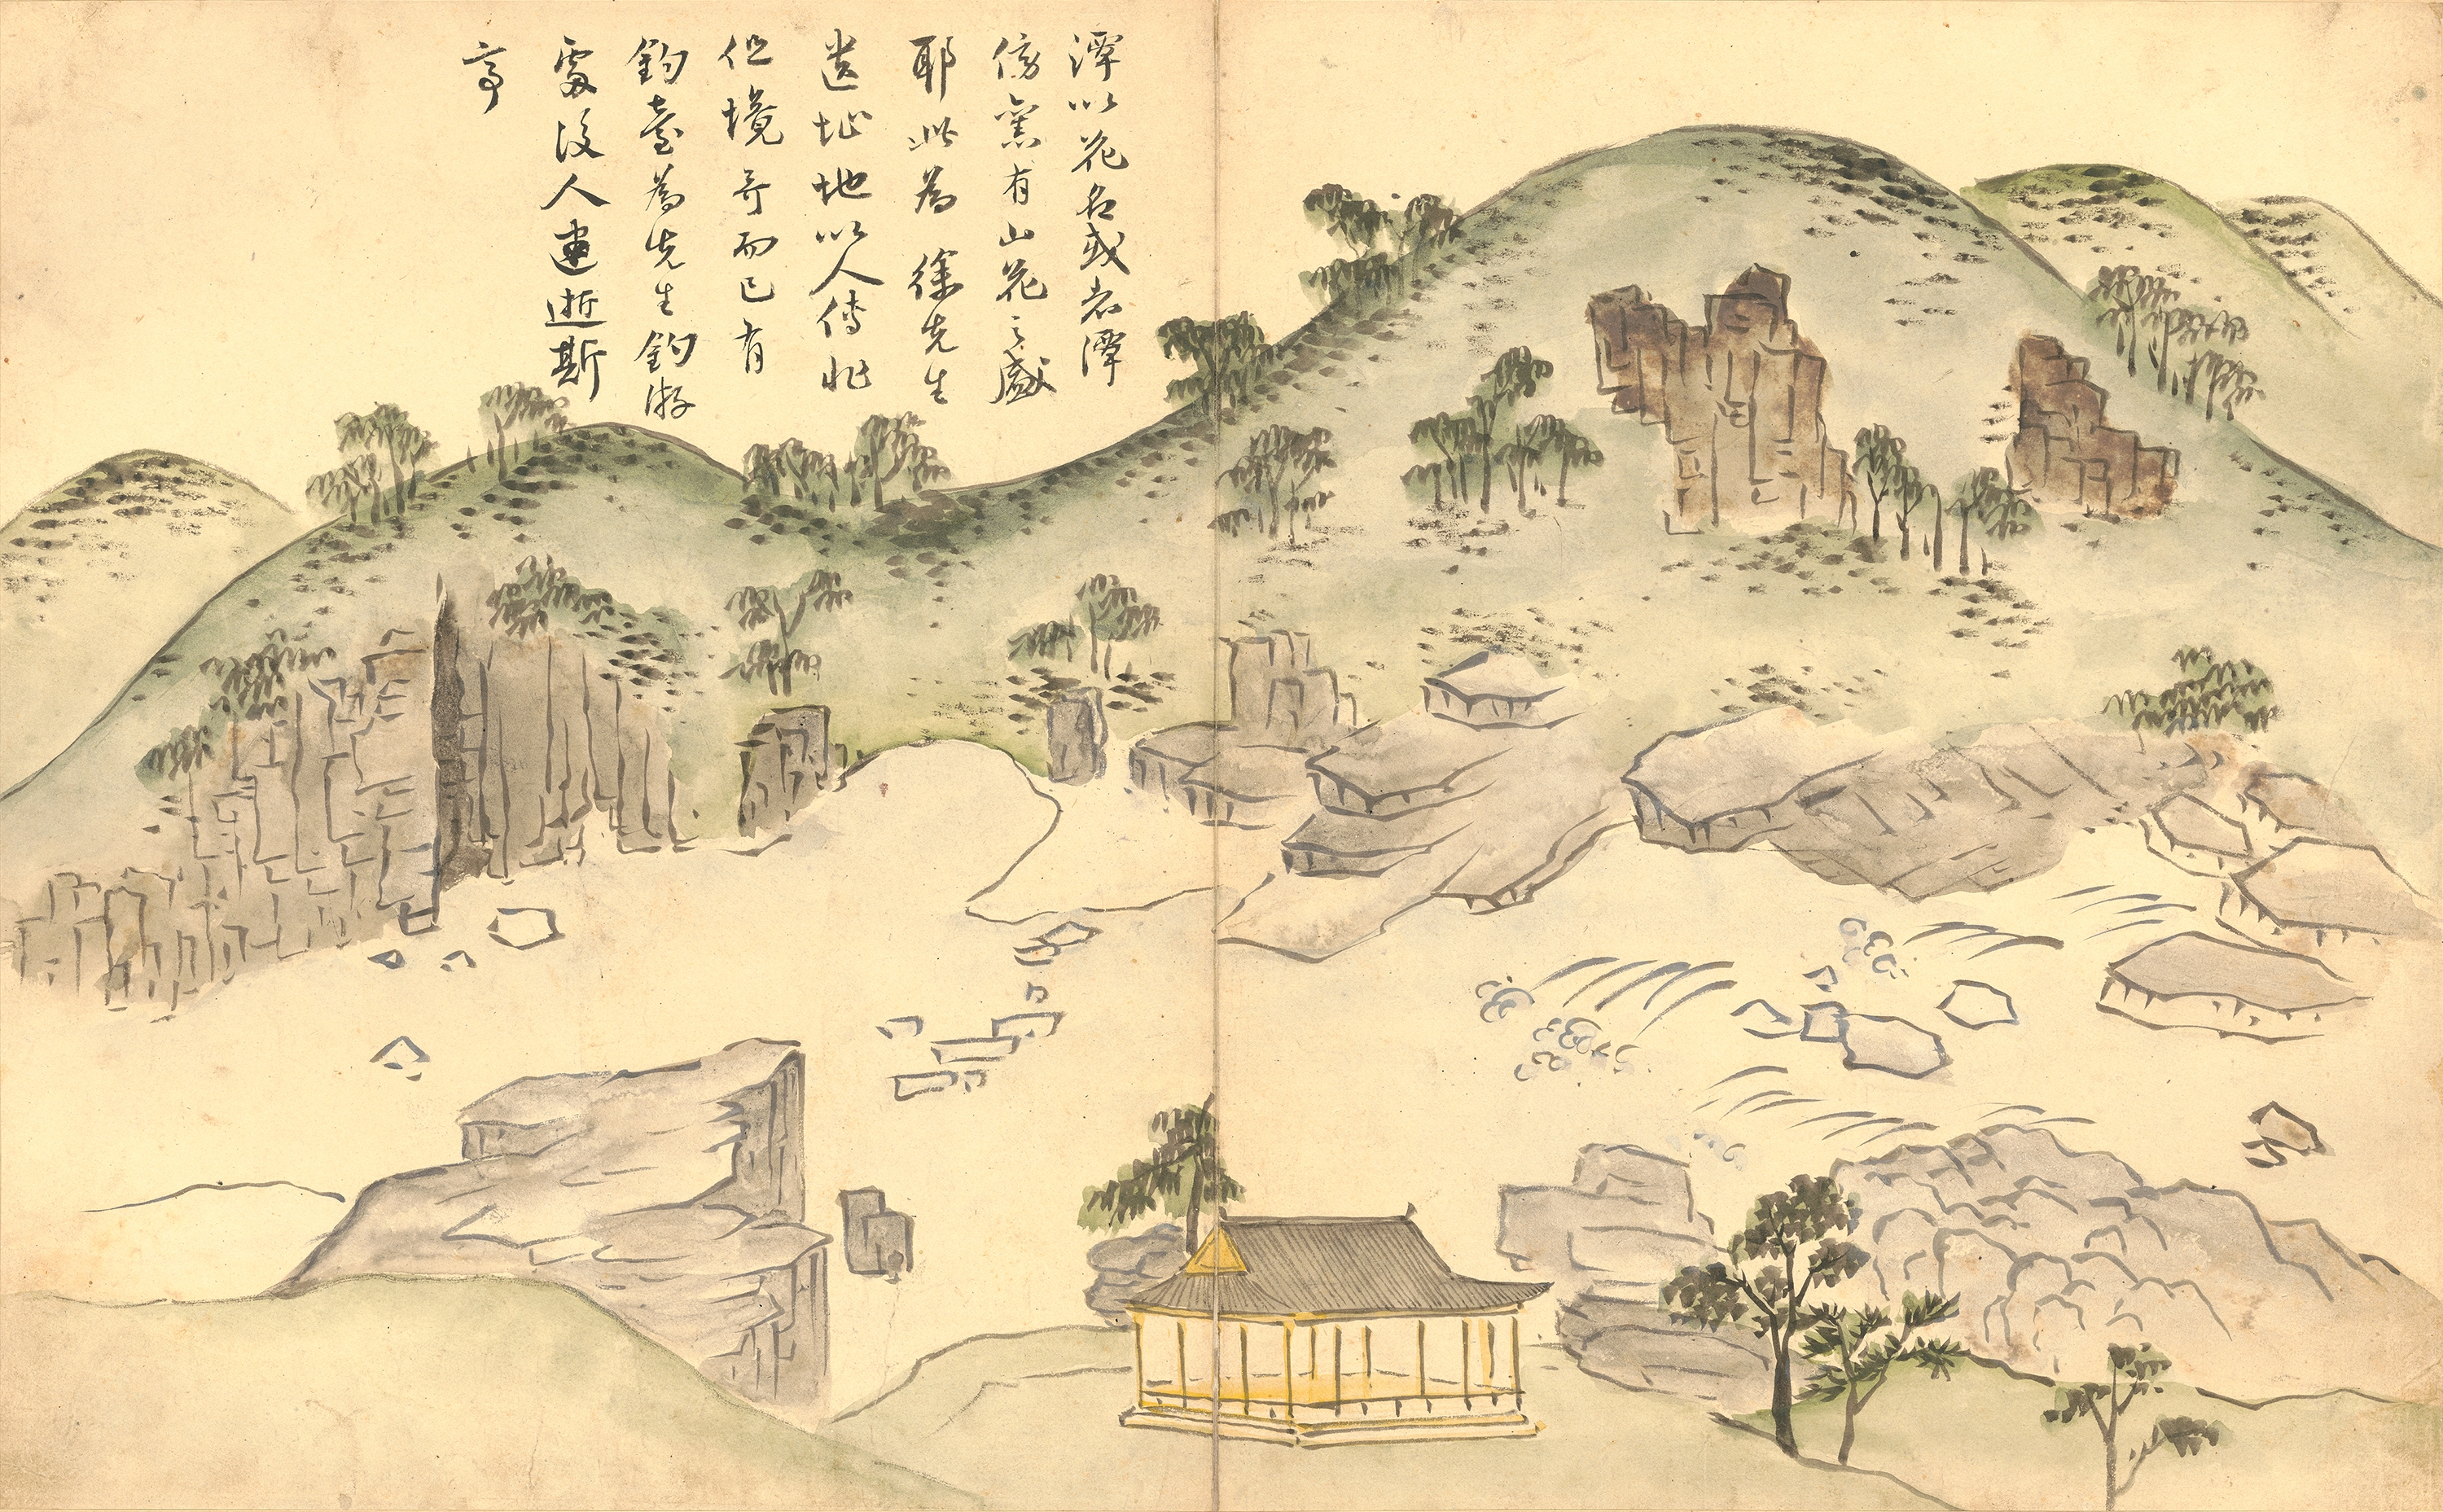 潭以花名或者潭
傍舊有山花之盛
耶此為徐先生
遺址地以人傳非
但境奇而已有
釣臺為先生釣游
處後人建逝斯
亭